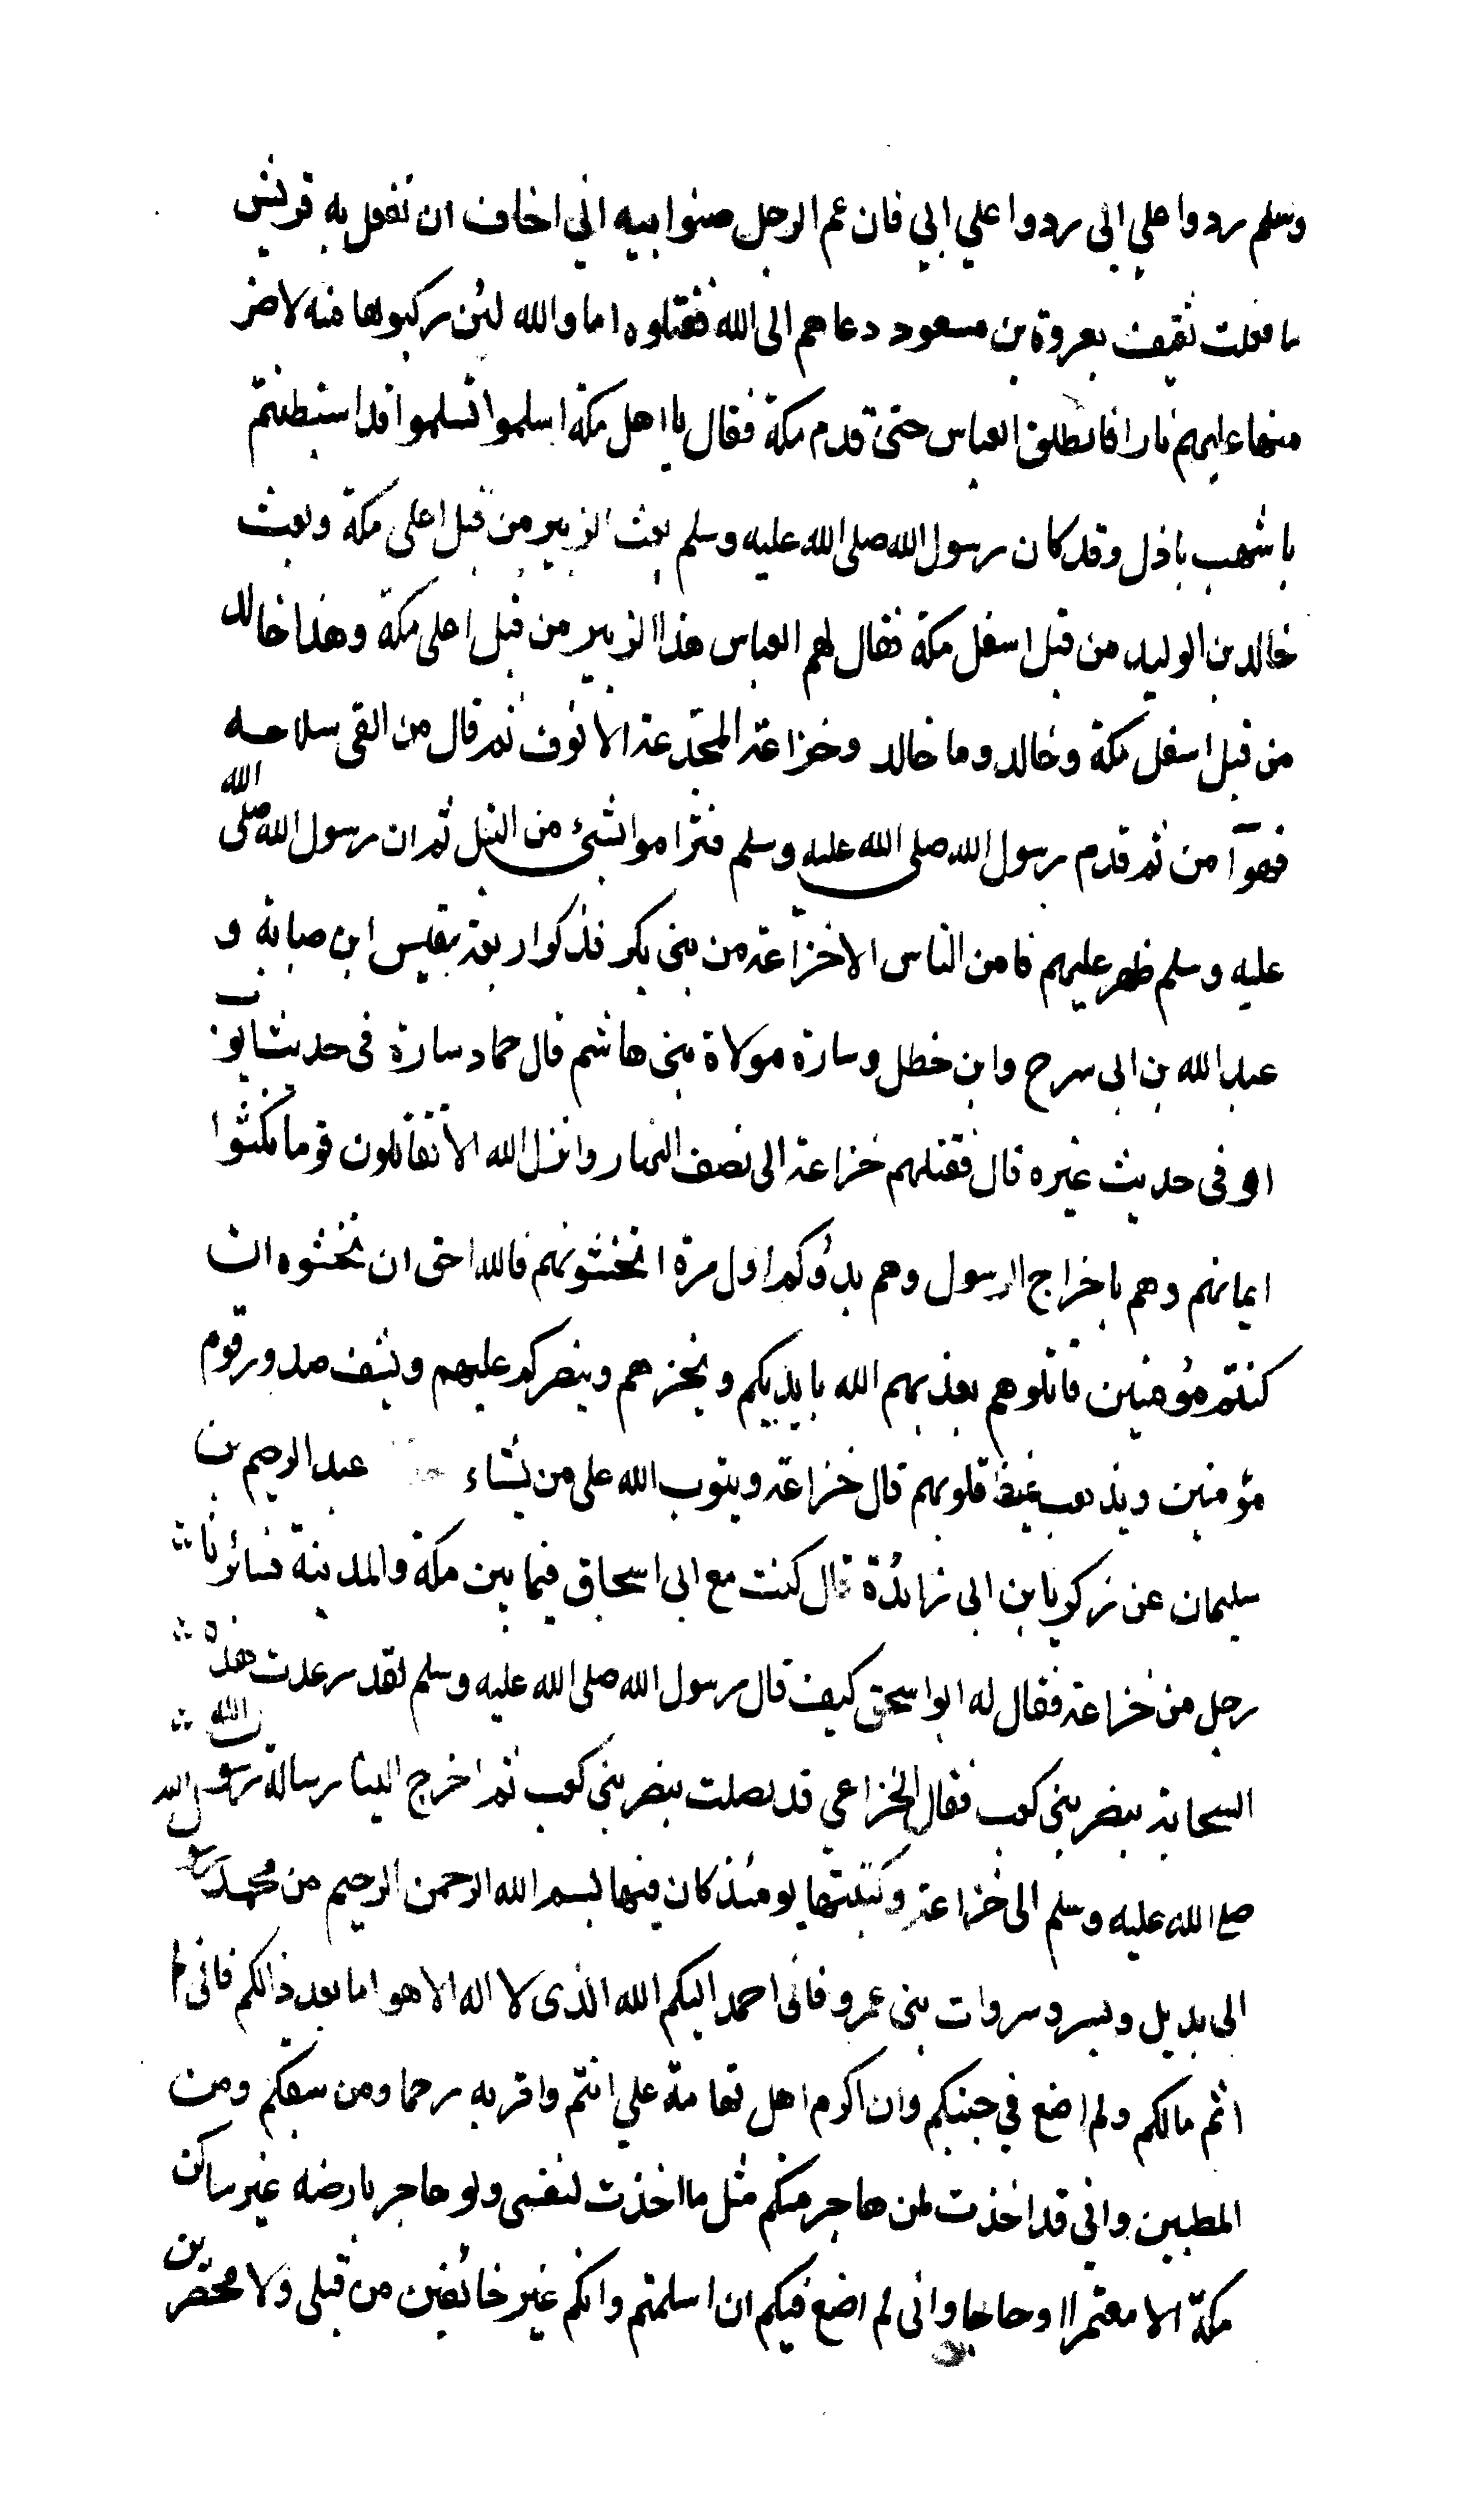 وسلم ردوا علي ابى ردوا علي ابي فان عم الرجل صنوابيه اني اخاف ان تفعل به قريش
ما فعلت ثقيف بعروة بن مسعود دعاهم الى الله فقتلوه اما والله لئن ركبوها منه لاضر
منها عليهم نارا فانطلق العباس حتى قدم مكة فقال يا اهل مكة اسلموا تسلموا قد استبطنتم
باشهب باذل وقد كان رسول الله صلى الله عليه وسلم بعث الزبير من قبل اعلى مكة وبعث
خالد بن الوليد من قبل اسفل مكة فقال لهم العباس هذا الزبير من قبل اعلى مكة وهذا خالد
من قبل اسفل مكة وخالد وما خالد وخزاعة المجدعة الانوف ثم قال من القى سلاحه
فهوآمن ثم قدم رسول الله صلى الله عليه وسلم فتراموا بشئ من النبل ثم ان رسول الله صلى الله
عليه وسلم ظهر عليهم فامن الناس الا خزاعة من بنى بكر فذكوا ربعة بقيس ابن صبابة و
عبد الله بن ابى سرح وابن خطل وسارة مولاة بنى هاشم قال حماد سارة فى حديث ايوب
او فى حديث غيره قال فقتلهم خزاعة الى نصف النهار وانزل الله الا تقاتلون قوما نكثوا
ايمانهم وهم باخراج الرسول وهم بدؤكم اول مرة اتخشونهم فالله احق ان تخشوه ان
كنتم مؤمنين قاتلوهم يعذبهم الله بايديكم ويخزهم وينصركم عليهم ويشف صدور قوم
مؤمنين ويذهب غيظ قلوبهم قال خزاعة ويتوب الله على من يشاء عبد الرحيم بن
سليمان عن زكريا بن ابى زائدة قال كنت مع ابى اسحاق فيما بين مكة والمدينة فسائرنا
رجل من خزاعة فقال له ابو اسحق كيف قال رسول الله صلى الله عليه وسلم لقد رعدت هذه
السحابة بنصر بنى كعب فقال الخزاعي قد نصلت بنصر بنى كعب ثم اخرج الينا رسالة رسول الله
صلى الله عليه وسلم الى خزاعة وكتبتها يومئذ كان فيها بسم الله الرحمن الرحيم من محمد رسول الله
الى بديل وبسر وسروات بنى عمرو فانى احمد اليكم الله الذى لا اله الا هو اما بعد ذالكم فانى لم
اثم مالكم ولم اضع في جنبكم وان اكرم اهل تهامة علي انتم واقربه رحما ومن تبعكم ومن
المطبين وانى قد اخذت لمن هاجر منكم مثل ما اخذت لنفسى ولو هاجر بارضه غير ساكن
مكة الا معتمرا او حاجا وانى لم اضع فيكم ان اسلمتم وانكم غير خائفين من قبلى ولا محصرين